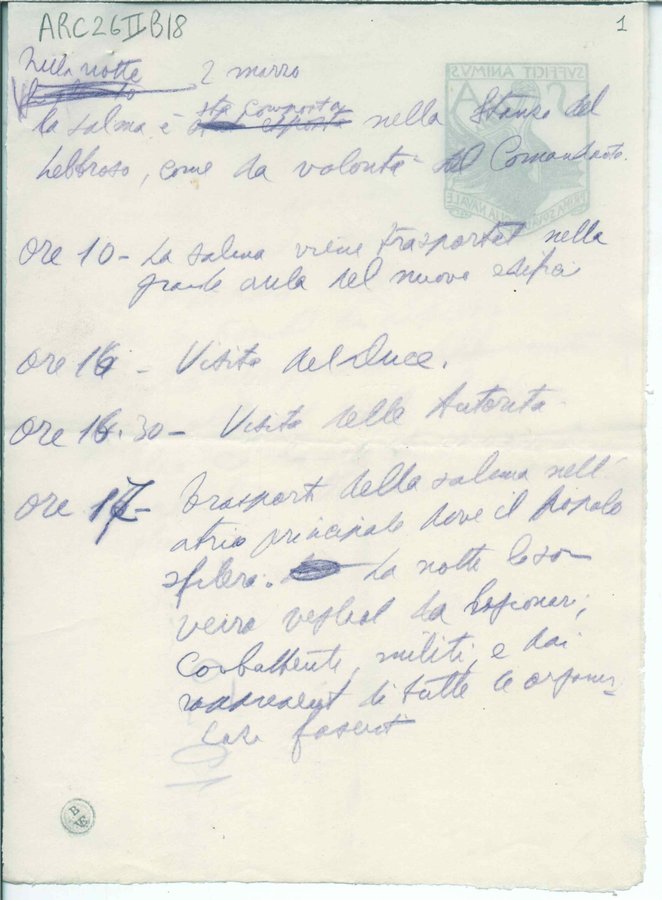 ARC26IIB18
1
Nella notte 2 marzo
sta composta
la salma è nella Stanza del
Lebbroso, come da volontà del Comandante.
ore 10 - La salma viene trasportat nella
grande aula del nuovo
ore 16 - Visita del Duce.
ore 16.30 - Visita delle Autorità
ore 17 - Trasport della salma nell'
atrio principale dove il popolo
sfilerà. La notte la sa-
da legionari,
combattenti, militi, e dai
di tutte le
SVFFICIT ANIMVS